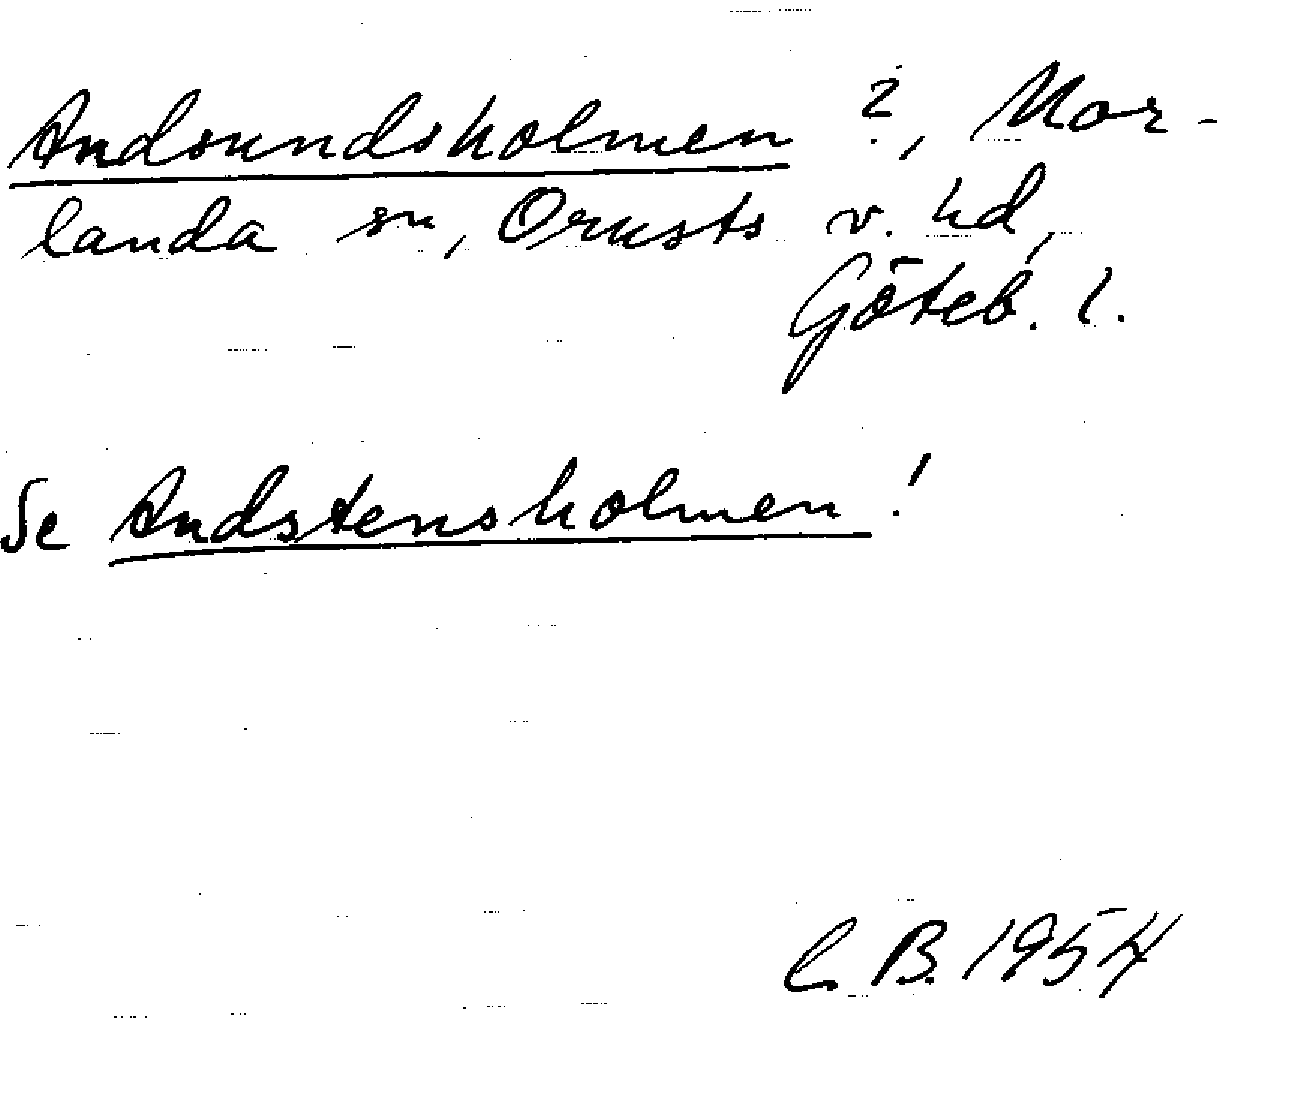 Andsundsholmen ?, Mor-
landa sn, Orusts v. hd,
Göteb. l.
Se Andstensholmen!
C. B. 1954